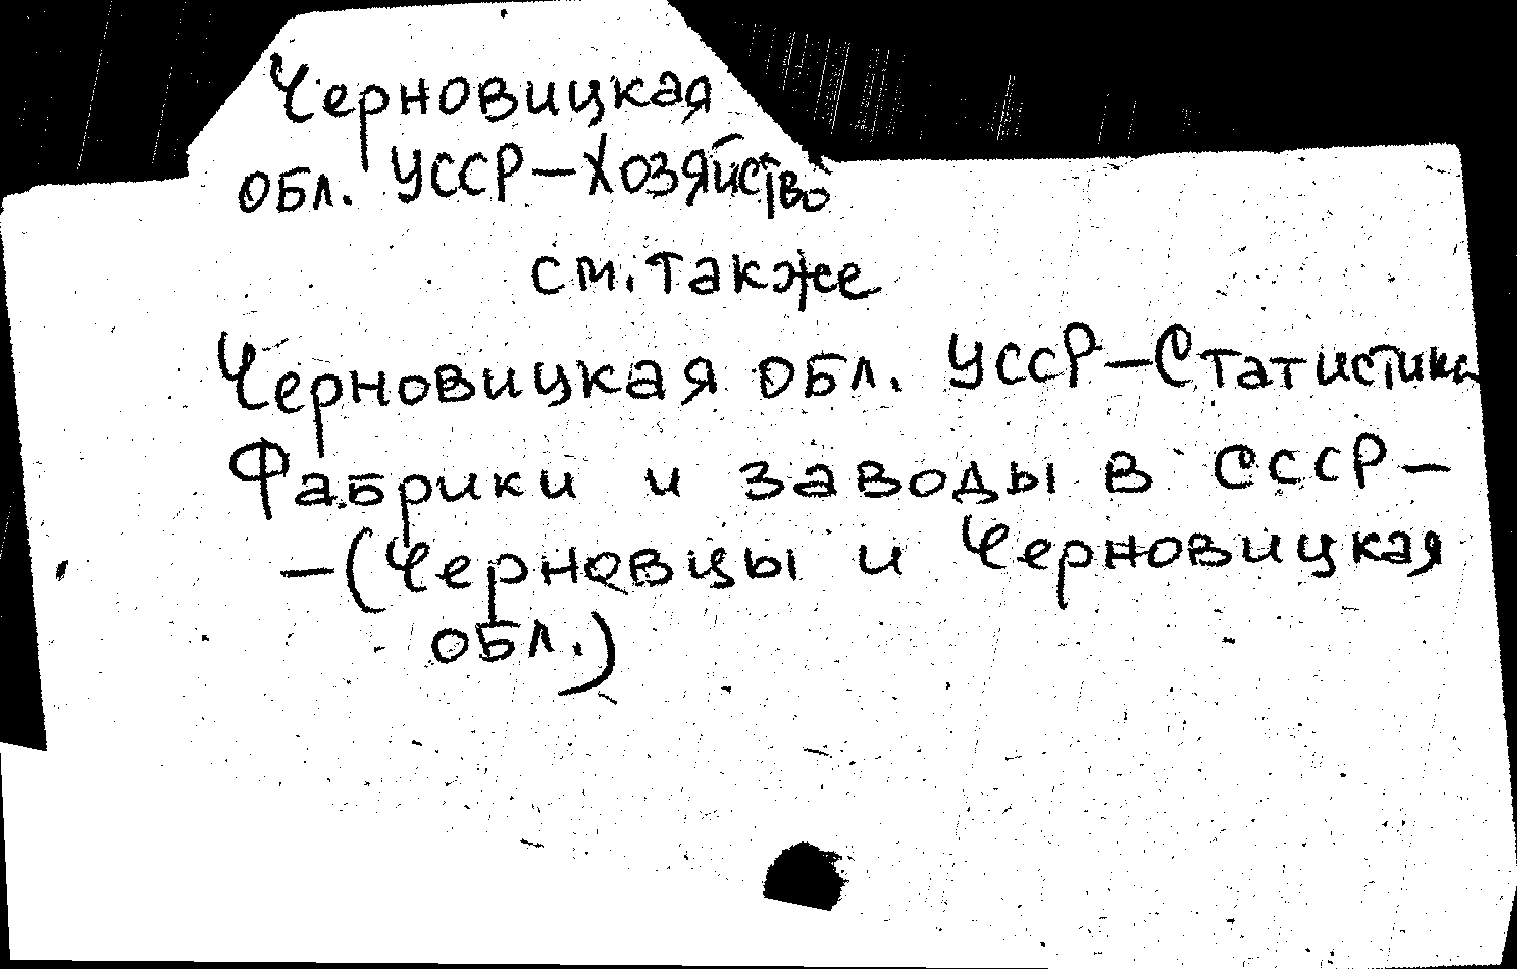 Черновицкая
обл. УССР — Хозяйство
см. также
Черновицкая обл. УССР — Статистика
Фабрики и заводы в СССР —
— (Черновцы и Черновицкая
обл.)